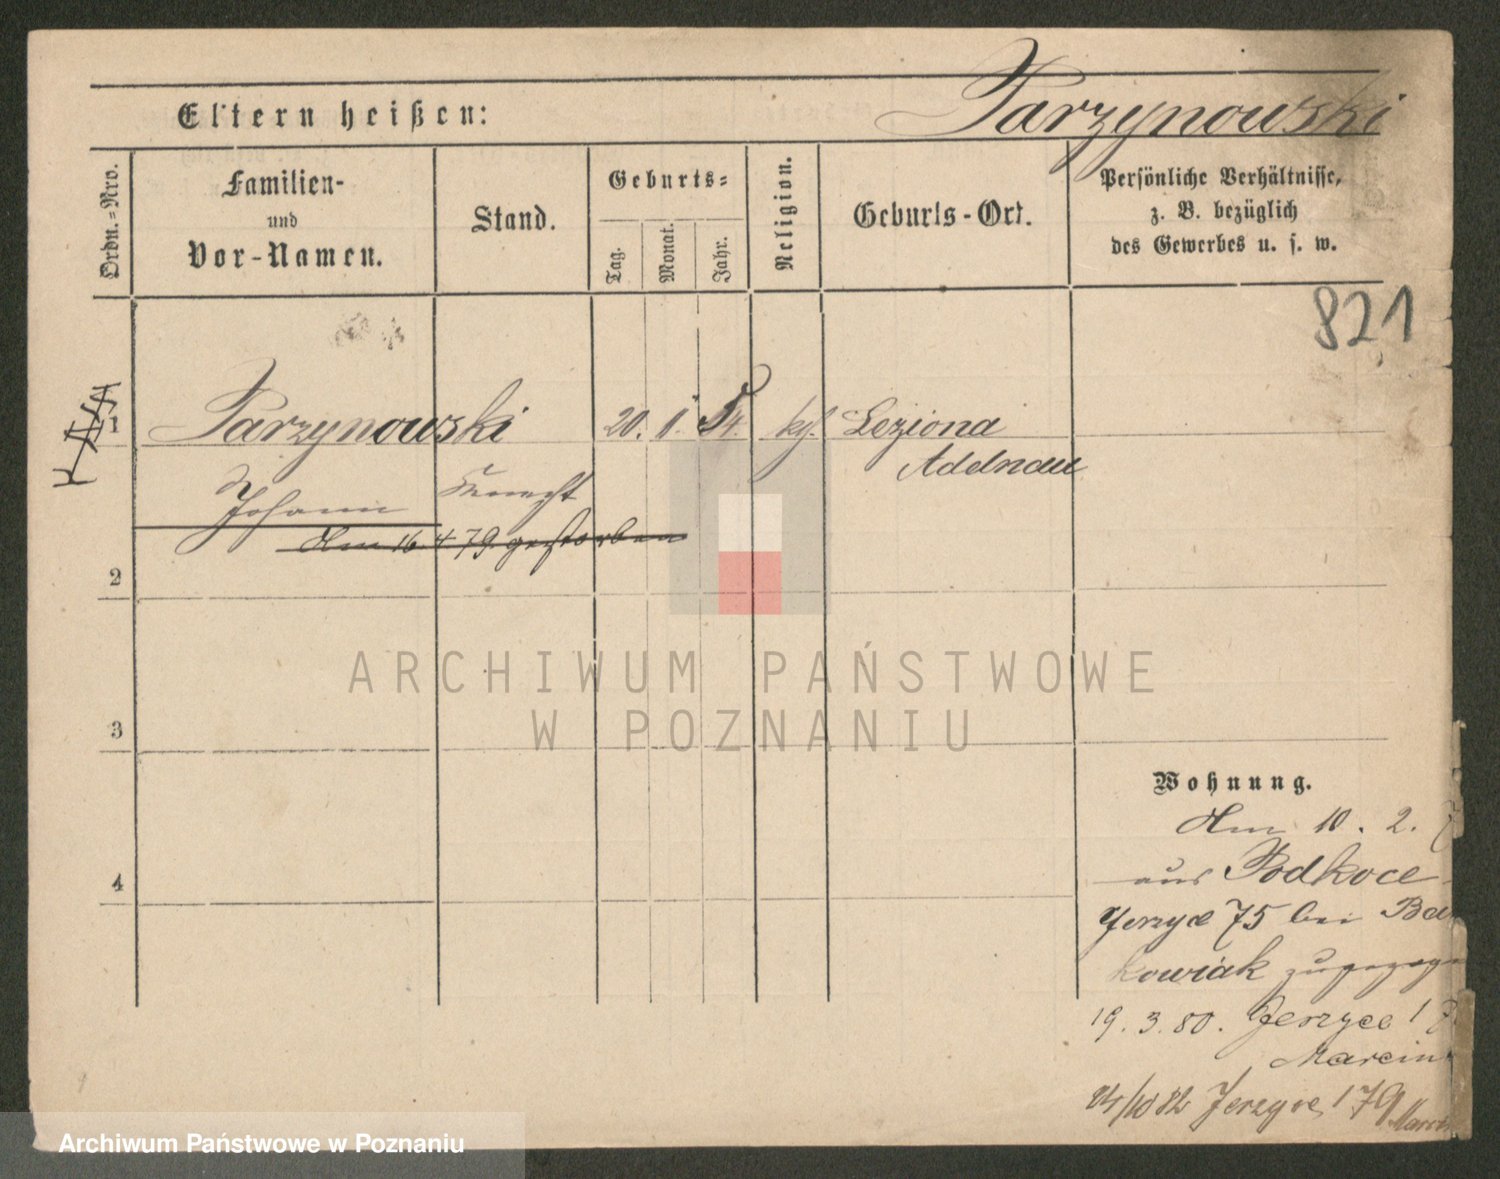 Eltern heißen: Parzynowski
Ordn.=Nro.
Familien-
und
Vor-Namen.
Stand.
Geburts=
Tag.
Monat.
Jahr.
Religion.
Geburts-Ort.
Persönliche Verhältnisse,
z. B. bezüglich
des Gewerbes u. s. w.
821
1 Parzynowski 20. 54. Leziona
Adelnau
Johann Knecht
Am 16 4 79 gestorben
2
3
4
ARCHIWUM PAŃSTWOWE
W POZNANIU
Wohnung.
Am 10. 2. 7
aus Podkoce
Jerzyce 75 bei Ba
kowiak
19. 3. 80. Jerzyce 17
Marcin
24/10 82 Jerzyce 179
Archiwum Państwowe w Poznaniu